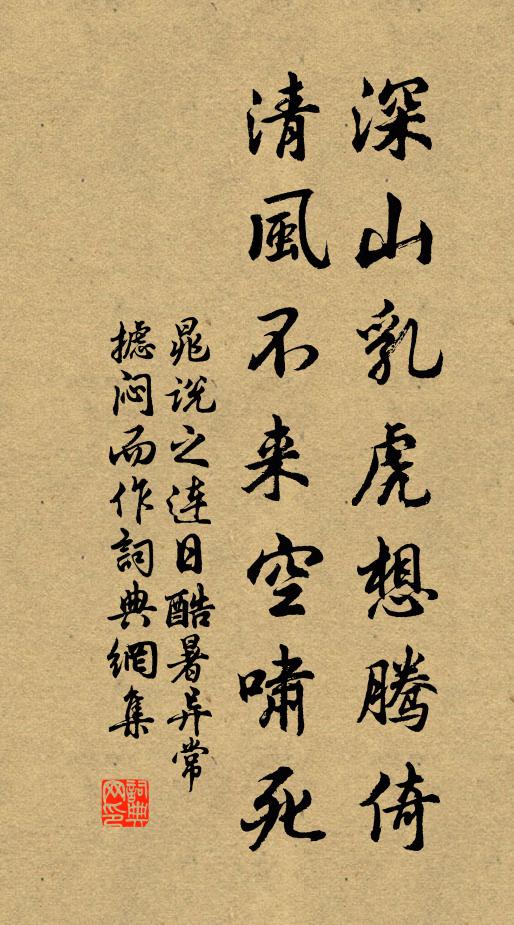 深山乳虎想騰倚
清風不来空嘯死
晁说之连日酷暑异常
摅闷而作詞典網集
詞典网印